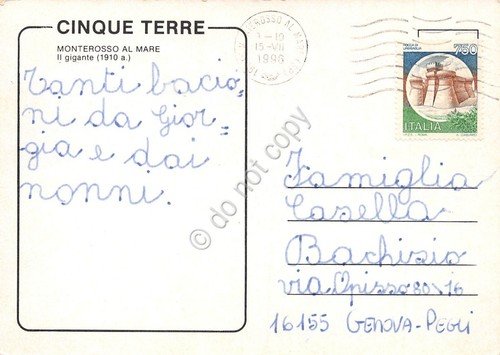 CINQUE TERRE
MONTEROSSO AL MARE
Il gigante (1910 a.)
Tanti bacio=
ni da Gior=
gia e dai
nonni.
MONTEROSSO AL MARE
-19
15-VII
1996
750
ROCCA DI URBISAGLIA
ITALIA
Famiglia
Casella
Bachisio
via Opisso 80\16
16155 GENOVA-PEGLI
© do not copy